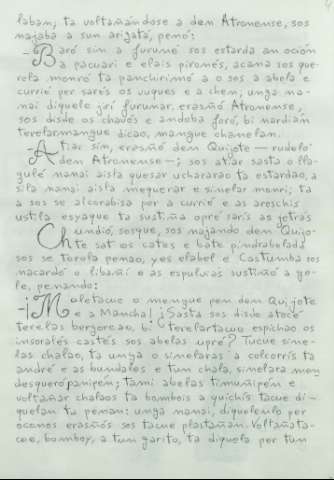 laban; ta voltañándose a dem Atronense, sos
majaba a sun arigata, penó:
-Baró sim a furune sos estarda an oción
a pacuari e elais pironés, acana sos que-
rela monró ta panchirimo a o sos a abela e
currie per sarés os vuques e a chem; unga na-
nai diquelo jri furumar, erasnó Atronense,
sos disde os chavós e amdoba foró, bi nardian
terelarmangue dicao, mangue chanelan.
-Atiar sim, erasnó dem Quijote — rudeló
dem Atronense —; sos atiar sasta o lla-
gulé nanai aisla quesar uchararao ta estardao, a
sila nanai aisla mequerar e sinelar monri; ta
a sos se alcorabisa per a currie e as areschis
ustila esyaque ta sustiña opré sarís as jetrás
Chundió, sosque, sos najando dem Quijo-
te sat os catos e bate pindrabelada
sos se terela penao, yes elabel e Castumba sos
nacardó o libañí e as espulvís sustiñó a go-
le, penando:
-¡Moletacue o mengue pen dem Quijote
e a Mancha! ¡Sasta sos disde atocé
terelas bergorcao, bi terelartacue espichao os
insoralés castés sos abelas upré? Tucue sine-
las chalao, ta unga o sinelaras a colcorrís ta
andré e as bundales e tun chala, sinelara men
desquero panipén; tami abelas timuñipén e
voltañar chalaos ta bombois a quichís tacue di-
quelan ta penan: unga nanai, diquelenlo per
ocanos erasnós sos tacue plastañan. Voltañata-
cue, bomboy, a tun garito, ta diquela per tun